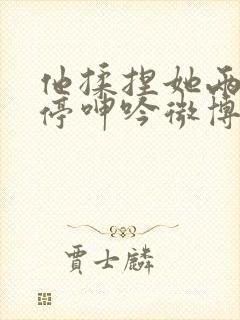 他揉捏她两
停呻吟微博
贾士麟